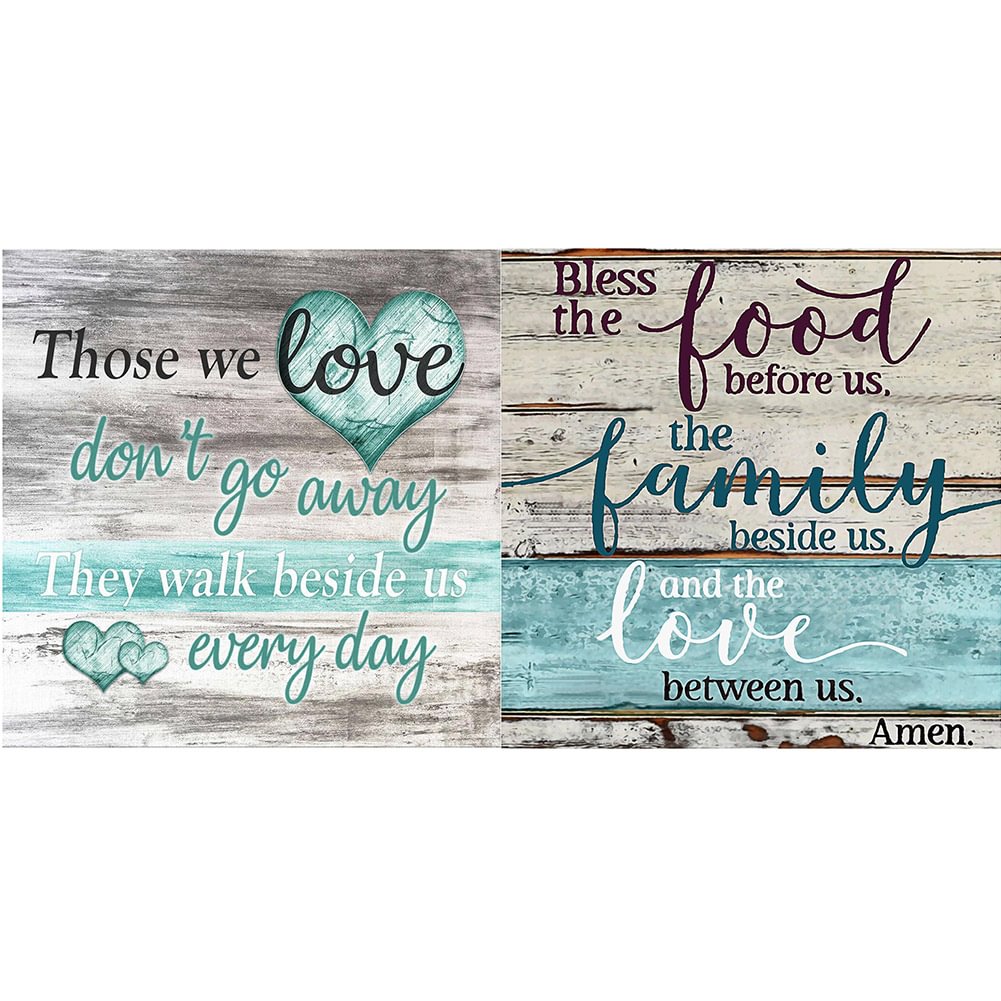 Those we love
don't go away
They walk beside us
every day
Bless
the food
before us,
the
family
beside us,
and the
love
between us.
Amen.